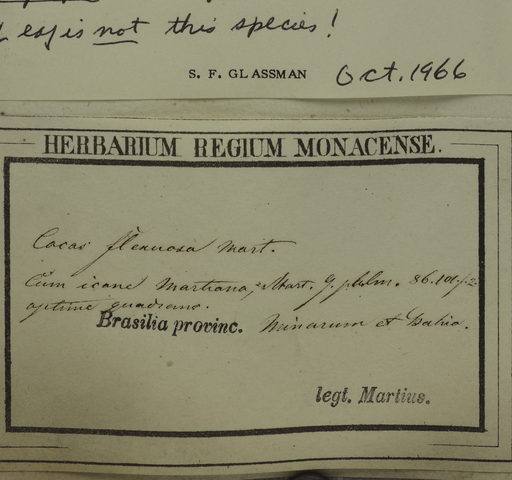 leaf is not this species!
S. F. GLASSMAN Oct. 1966
HERBARIUM REGIUM MONACENSE.
Cocos flexuosa Mart.
Cum icone Martiana, Mart. g. palm. 86. 101. f. 2
optime quadrans.
Brasilia provinc. Minarum et Bahia.
legt. Martius.